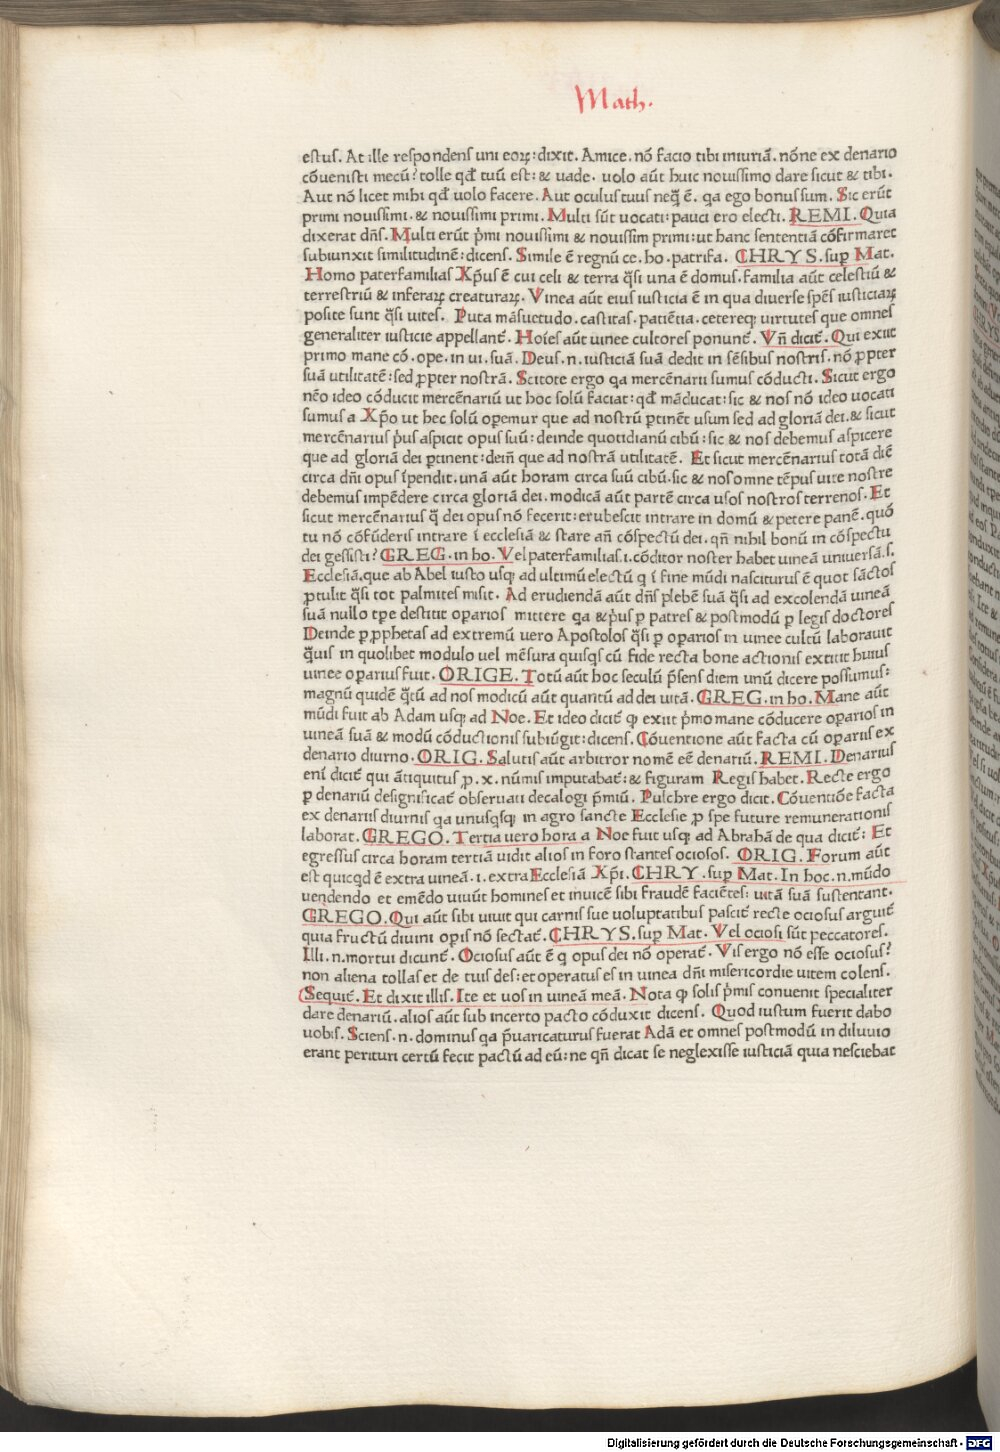 Math.
estus. At ille respondens uni eoꝝ: dixit. Amice. nō facio tibi iniuriā. nōne ex denario
cōuenisti mecū? tolle qđ tuū est: & uade. uolo aūt huic nouissimo dare sicut & tibi.
Aut nō licet mihi qđ uolo facere. Aut oculus tuus neq̄ ē. qa ego bonus sum. Sic erūt
primi nouissimi. & nouissimi primi. Multi sūt uocati: pauci ero electi. REMI. Quia
dixerat dñs. Multi erūt p̄mi nouissimi & nouissim primi: ut hanc sententiā cōfirmaret
subiunxit similitudinē: dicens. Simile ē regnū ce. ho. patrifa. CHRYS. sup Mat.
Homo paterfamilias Xp̄us ē cui celi & terra q̄si una ē domus. familia aūt celestiū &
terrestriū & inferaꝝ creaturaꝝ. Vinea aūt eius iusticia ē in qua diuerse spēs iusticiaꝝ
posite sunt q̄si uites. Puta māsuetudo. castitas. patiētia. cetereqꝫ uirtutes que omnes
generaliter iusticie appellant᷑. Hoīes aūt uinee cultores ponunt᷑. Vñ dicit᷑. Qui exiit
primo mane cō. ope. in ui. suā. Deus. n. iusticiā suā dedit in sēsibus nostris. nō ꝓpter
suā utilitatē: sed ꝓpter nostrā. Scitote ergo qa mercēnarii sumus cōducti. Sicut ergo
nēo ideo cōducit mercēnariū ut hoc solū faciat: qđ māducat: sic & nos nō ideo uocati
sumus a Xp̄o ut hec solū operemur que ad nostrū ꝑtinēt usum sed ad gloriā dei. & sicut
mercēnarius p̄us aspicit opus suū: deinde quotidianū cibū: sic & nos debemus aspicere
que ad gloriā dei ꝑtinent: deiñ que ad nostrā utilitatē. Et sicut mercēnarius totā diē
circa dñi opus īpendit. unā aūt horam circa suū cibū. sic & nos omne tēpus uite nostre
debemus impēdere circa gloriā dei. modicā aūt partē circa usos nostros terrenos. Et
sicut mercēnarius q̄ dei opus nō fecerit: erubescit intrare in domū & petere panē. quō
tu nō cōfūderis intrare ī ecclesiā & stare añ cōspectū dei. qñ nihil bonū in cōspectu
dei gessisti? GREG. in ho. Vel paterfamilias. i. cōditor noster habet uineā uniuersā. s.
Ecclesiā. que ab Abel iusto usqꝫ ad ultimū electū q ī fine mūdi nasciturus ē quot sāctos
ꝓtulit q̄si tot palmites misit. Ad erudiendā aūt dñs plebē suā q̄si ad excolendā uineā
suā nullo tpe destitit oparios mittere qa & p̄us ꝑ patres & postmodū ꝑ legis doctores
Deinde ꝑ ꝓphetas ad extremū uero Apostolos q̄si ꝑ oparios in uinee cultū laborauit
q̄uis in quolibet modulo uel mēsura quisqs cū fide recta bone actionis extitit huius
uinee oparius fuit. ORIGE. Totū aūt hoc seculū p̄sens diem unū dicere possumus:
magnū quidē q̄tū ad nos modicū aūt quantū ad dei uitā. GREG. in ho. Mane aūt
mūdi fuit ab Adam usqꝫ ad Noe. Et ideo dicit᷑ qꝫ exiit p̄mo mane cōducere oparios in
uineā suā & modū cōductionis subiūgit: dicens. Cōuentione aūt facta cū opariis ex
denario diurno. ORIG. Salutis aūt arbitror nomē eē denariū. REMI. Denarius
enī dicit᷑ qui ātiquitus ꝓ. x. nūmis imputabat᷑: & figuram Regis habet. Recte ergo
ꝑ denariū designificat᷑ obseruati decalogi p̄miū. Pulchre ergo dicit. Cōuentiōe facta
ex denariis diurnis qa unusqsqꝫ in agro sancte Ecclesie ꝓ spe future remunerationis
laborat. GREGO. Tertia uero hora a Noe fuit usqꝫ ad Abrahā de qua dicit᷑: Et
egressus circa horam tertiā uidit alios in foro stantes ociosos. ORIG. Forum aūt
est quicqd ē extra uineā. i. extra Ecclesiā Xp̄i. CHRY. sup Mat. In hoc. n. mūdo
uendendo et emēdo uiuūt homines et inuicē sibi fraudē faciētes: uitā suā sustentant.
GREGO. Qui aūt sibi uiuit qui carnis sue uoluptatibus pascit᷑ recte ociosus arguit᷑
quia fructū diuini opis nō sectat᷑. CHRYS. sup Mat. Vel ociosi sūt peccatores.
Illi. n. mortui dicunt᷑. Ociosus aūt ē q opus dei nō operat᷑. Vis ergo nō esse ociosus?
non aliena tollas et de tuis des: et operatus es in uinea dñi misericordie uitem colens.
Sequit᷑. Et dixit illis. Ite et uos in uineā meā. Nota qꝫ solis p̄mis conuenit specialiter
dare denariū. alios aūt sub incerto pacto cōduxit dicens. Quod iustum fuerit dabo
uobis. Sciens. n. dominus qa p̄uaricaturus fuerat Adā et omnes postmodū in diluuio
erant perituri certū fecit pactū ad eū: ne qñ dicat se neglexisse iusticiā quia nesciebat
Digitalisierung gefördert durch die Deutsche Forschungsgemeinschaft - DFG